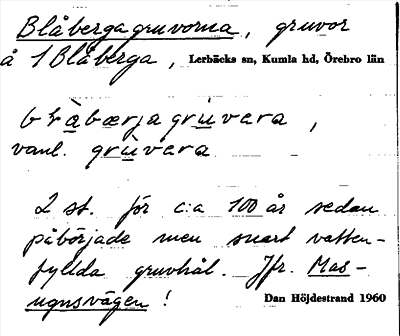 Blåbergagruvorna, gruvor
å 1 Blåberga, Lerbäcks sn, Kumla hd, Örebro län
blàbærjagrùvera,
vanl. grùvera
2 st. för c:a 100 år sedan
påbörjade men snart vatten-
fyllda gruvhål. Jfr. Mas-
ugnsvägen!
Dan Höjdestrand 1960